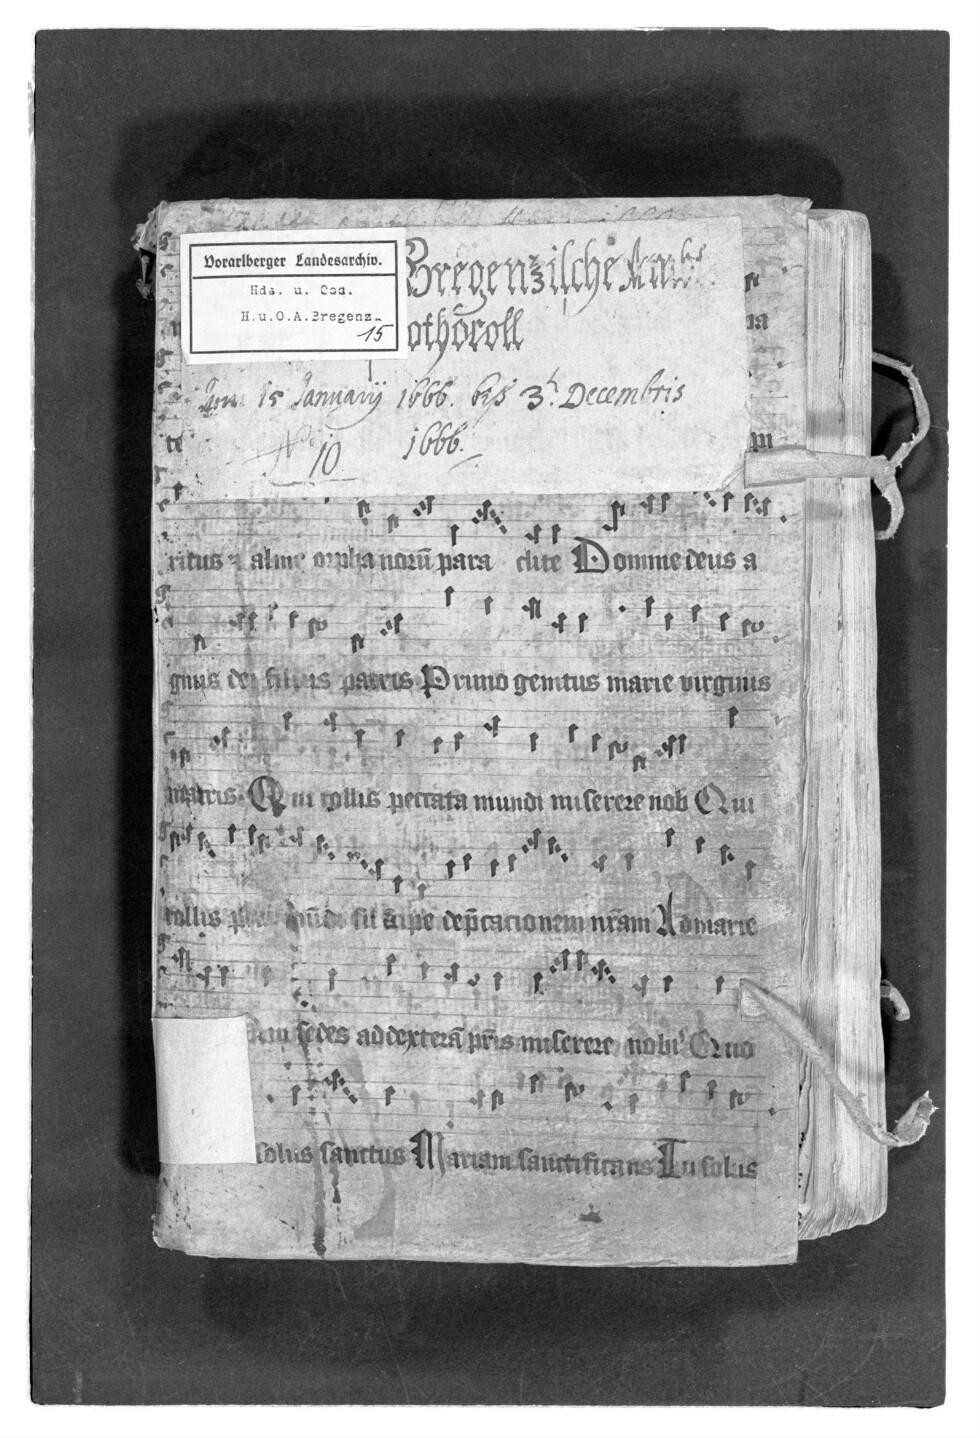 Vorarlberger Landesarchiv.
Hds. u. Cod.
H.u.O.A.Bregenz.
15
Bregenzische
othocoll
15 Januarij 1666. biß 3t. Decembris
1666.
No 10
ritus & alme orphanorū para clite Domine deus a
gnus dei filius patris Primo genitus marie virginis
matris. Qui tollis peccata mundi miserere nob Qui
tollis mūdi depcacionem nrām Ad marie
sedes ad dexterā pris miserere nobis Quo
solus sanctus Mariam sanctificans Tu solus